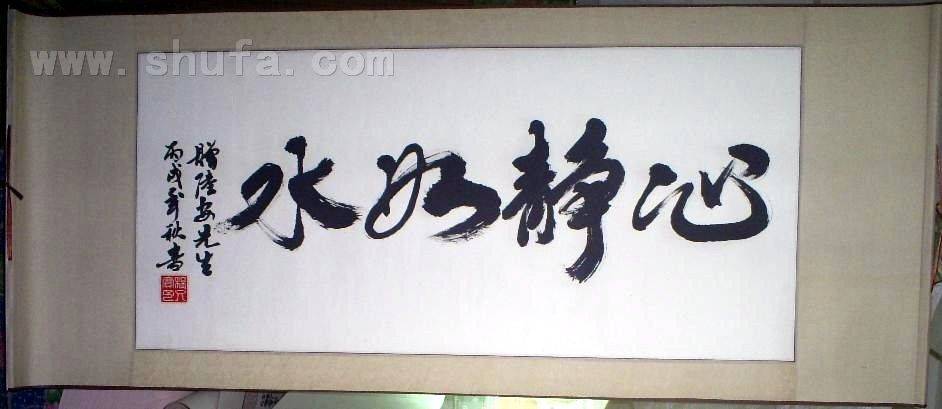 www.shufa.com
心静如水
赠陆安先生
丙戌年秋书